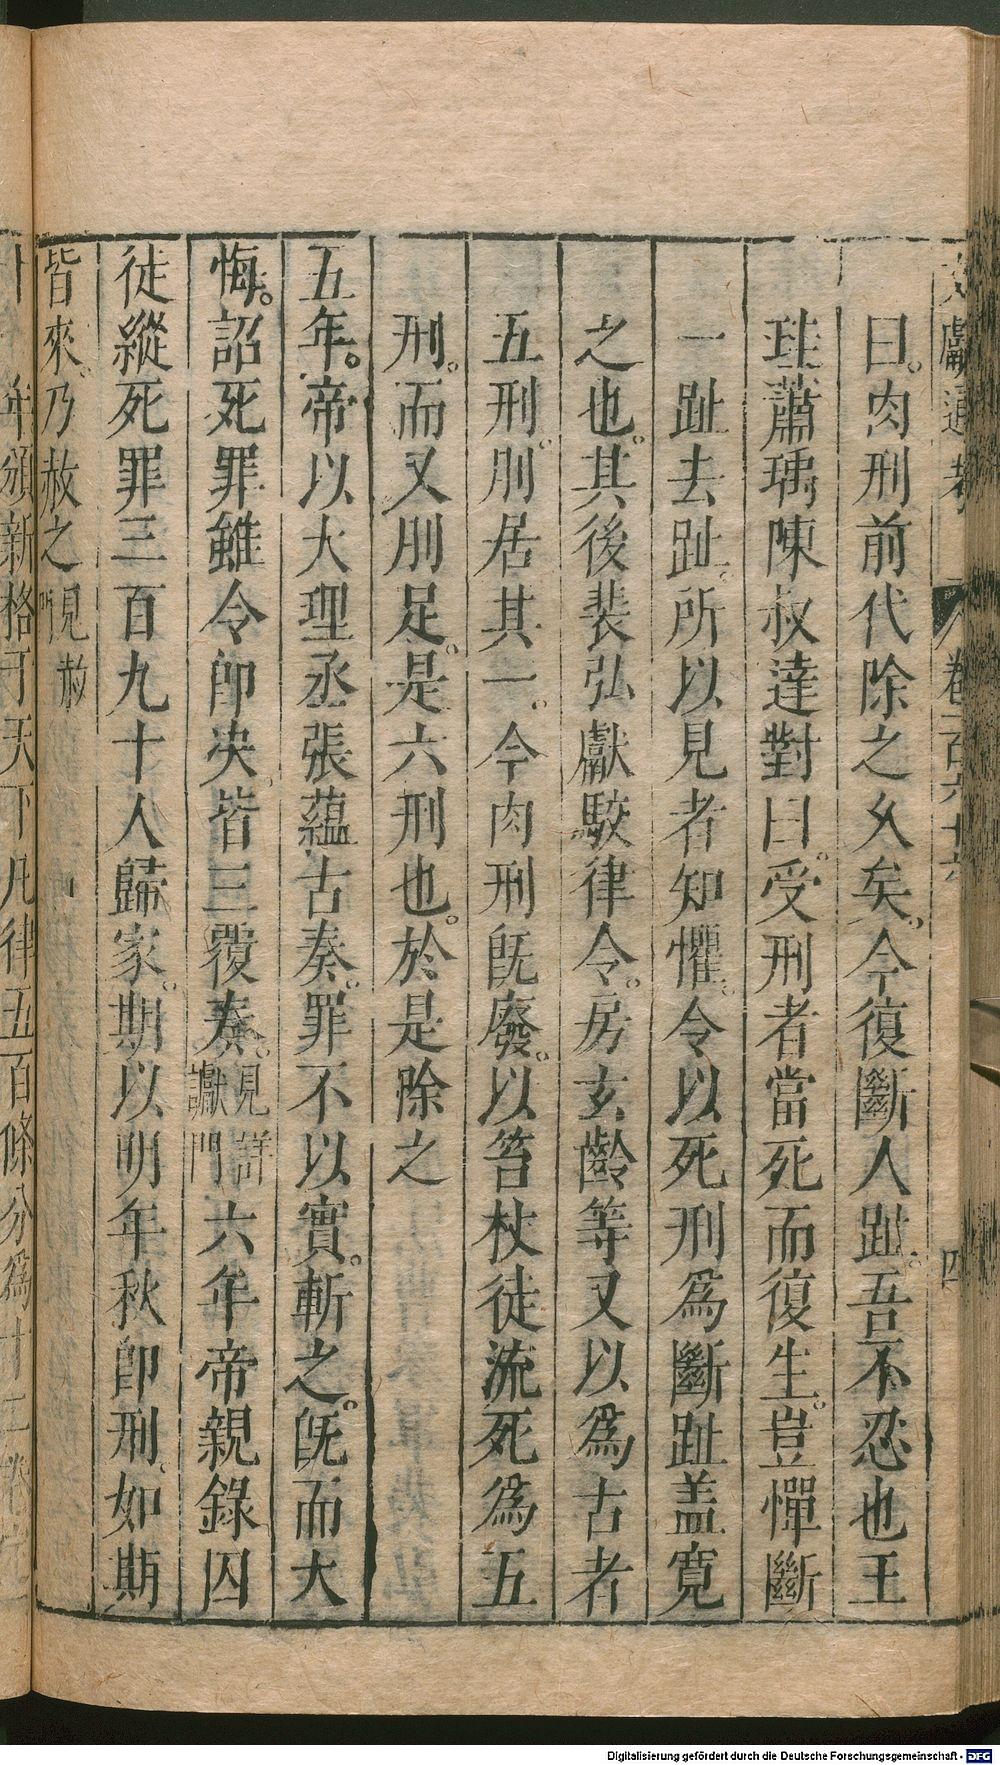 文獻通考 卷一百六十六 四
曰肉刑前代除之久矣今復斷人趾吾不忍也王
珪蕭瑀陳叔達對曰受刑者當死而復生豈憚斷
一趾去趾所以見者知懼今以死刑爲斷趾盖寬
之也其後裴弘獻駮律令房玄齡等又以爲古者
五刑刖居其一今肉刑旣廢以笞杖徒流死爲五
刑而又刖足是六刑也於是除之
五年帝以大理丞張蘊古奏罪不以實斬之旣而大
悔詔死罪雖令即决皆三覆奏見詳讞門六年帝親錄囚
徒縱死罪三百九十人歸家期以明年秋即刑如期
皆來乃赦之見赦
年頒新格于天下凡律五百條分爲十二卷
Digitalisierung gefördert durch die Deutsche Forschungsgemeinschaft - DFG